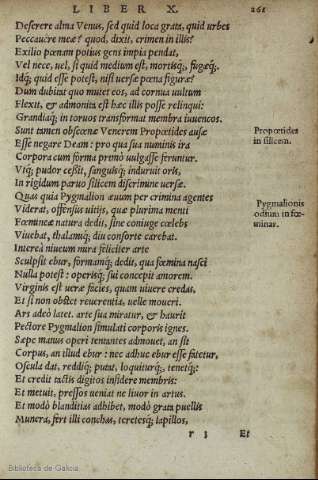 LIBER X. 261
Deserere alma Venus, sed quid loca grata, quid urbes
Peccauêre meæ? quod, dixit, crimen in illis?
Exilio pœnam potius gens impia pendat,
Vel nece, uel, si quid medium est, mortisq́;, fugæq́;.
Idq́; quid esse potest, nisi uersæ pœna figuræ?
Dum dubitat quo mutet eos, ad cornua uultum
Flexit, & admonita est hæc illis posse relinqui:
Grandiaq́; in toruos transformat membra iuuencos.
Sunt tamen obscœnæ Venerem Propœtides ausæ
Propœtides
Esse negare Deam: pro qua sua numinis ira
in silicem.
Corpora cum forma primò uulgasse feruntur.
Vtq́; pudor cessit, sanguisq́; induruit oris,
In rigidum paruo silicem discrimine uersæ.
Quas quia Pygmalion æuum per crimina agentes
Pygmalionis
Viderat, offensus uitijs, quæ plurima menti
odium in fœ-
Fœmineæ natura dedit, sine coniuge cœlebs
minas.
Viuebat, thalamiq́; diu consorte carebat.
Interea niueum mira feliciter arte
Sculpsit ebur, formamq́; dedit, qua fœmina nasci
Nulla potest: operisq́; sui concepit amorem.
Virginis est ueræ facies, quam uiuere credas,
Et si non obstet reuerentia, uelle moueri.
Ars adeò latet. arte sua miratur, & haurit
Pectore Pygmalion simulati corporis ignes.
Sæpe manus operi tentantes admouet, an sit
Corpus, an illud ebur: nec adhuc ebur esse fatetur,
Oscula dat, reddiq́; putat, loquiturq́;, tenetq́;:
Et credit tactis digitos insidere membris:
Et metuit, pressos ueniat ne liuor in artus.
Et modò blanditias adhibet, modò grata puellis
Munera, fert illi conchas, teretesq́; lapillos,
r 3 Et
Biblioteca de Galicia